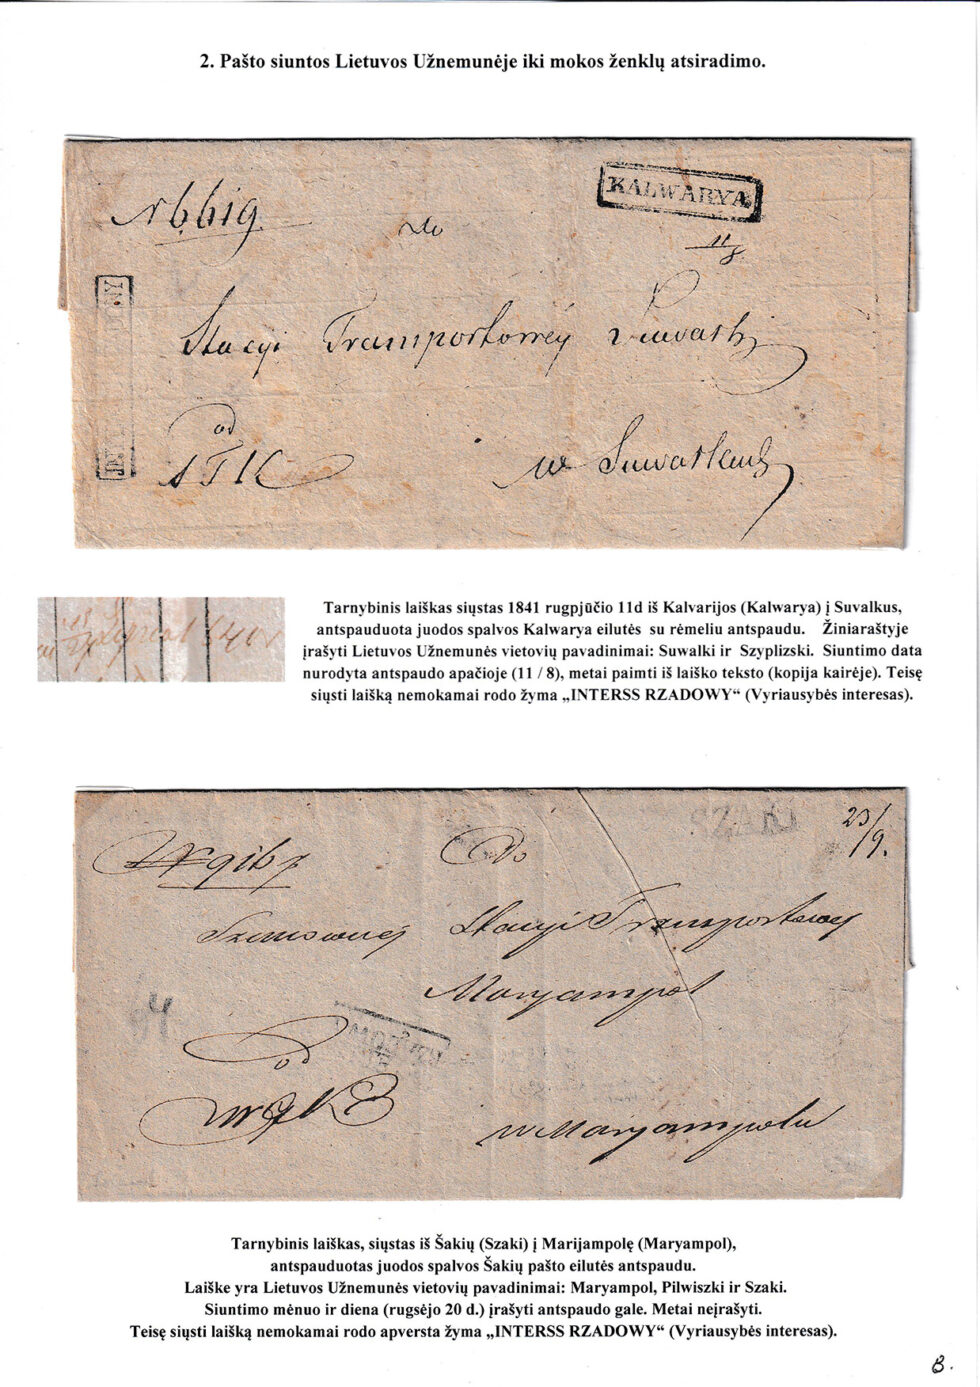 2. Pašto siuntos Lietuvos Užnemunėje iki mokos ženklų atsiradimo.
KALWARYA
N 6619
Do
11/8
Stacyi Transportowéy Suwałki
od
w Suwałkach
Tarnybinis laiškas siųstas 1841 rugpjūčio 11d iš Kalvarijos (Kalwarya) į Suvalkus,
antspauduota juodos spalvos Kalwarya eilutės su rėmeliu antspaudu. Žiniaraštyje
įrašyti Lietuvos Užnemunės vietovių pavadinimai: Suwalki ir Szyplizski. Siuntimo data
nurodyta antspaudo apačioje (11 / 8), metai paimti iš laiško teksto (kopija kairėje). Teisę
siųsti laišką nemokamai rodo žyma „INTERSS RZADOWY“ (Vyriausybės interesas).
SZAKI
Do
Stacyi Transportowey
Maryampol
od
w Maryampolu
Tarnybinis laiškas, siųstas iš Šakių (Szaki) į Marijampolę (Maryampol),
antspauduotas juodos spalvos Šakių pašto eilutės antspaudu.
Laiške yra Lietuvos Užnemunės vietovių pavadinimai: Maryampol, Pilwiszki ir Szaki.
Siuntimo mėnuo ir diena (rugsėjo 20 d.) įrašyti antspaudo gale. Metai neįrašyti.
Teisę siųsti laišką nemokamai rodo apversta žyma „INTERSS RZADOWY“ (Vyriausybės interesas).
8.